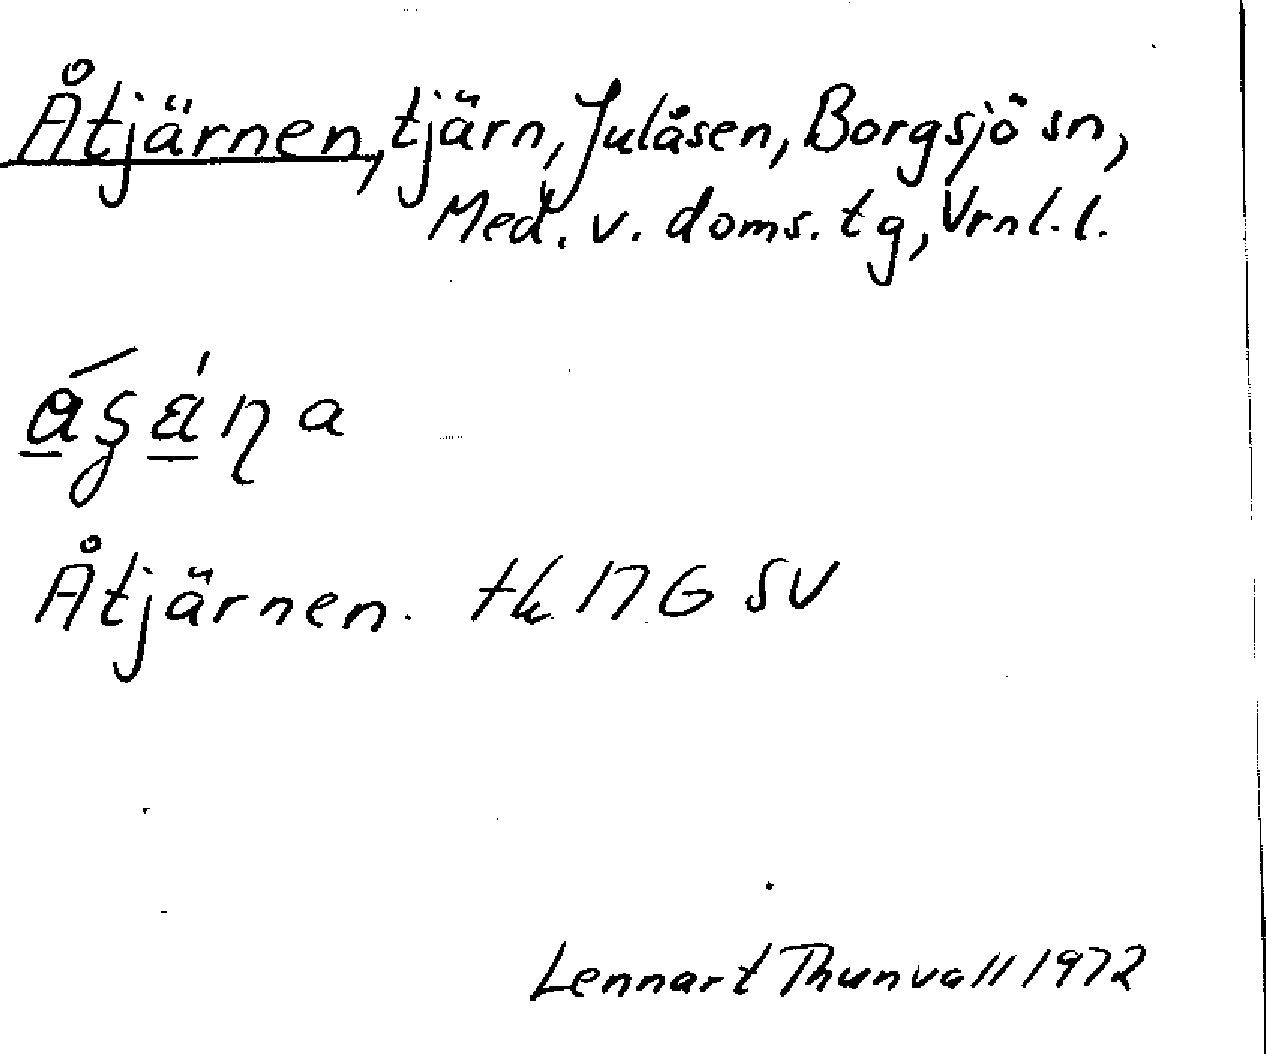 Åtjärnen, tjärn, Julåsen, Borgsjö sn,
Med. v. doms. tg, Vrnl. l.
Åtjärnen. tk 17 G SV
Lennart Thunvall 1972